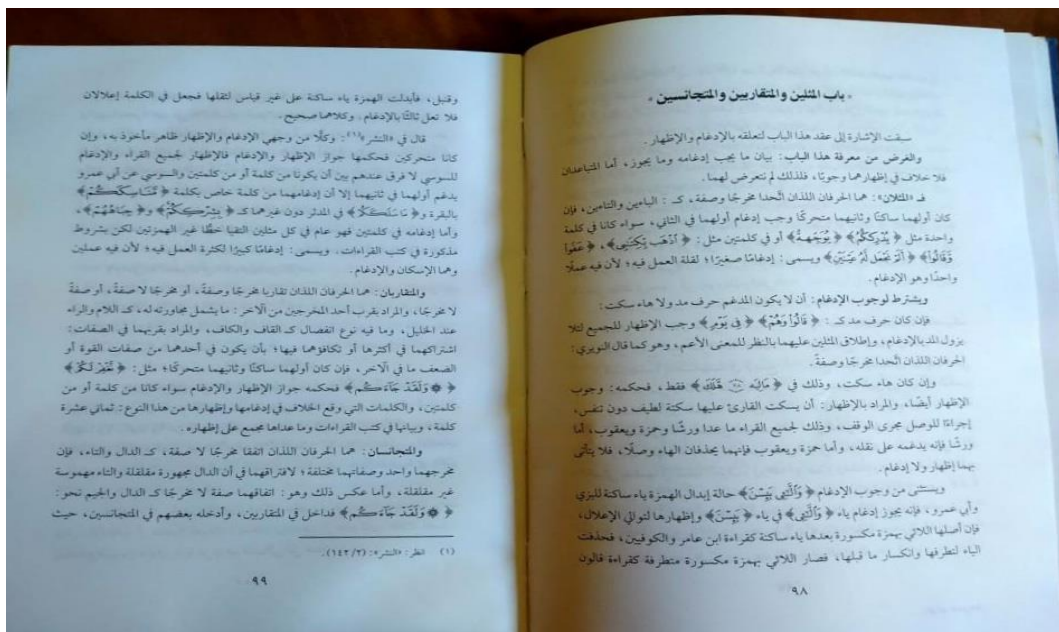 باب المثلين والمتقاربين والمتجانسين
سبقت الإشارة إلى عقد هذا الباب لتعلقه بالإدغام والإظهار.
والغرض من معرفة هذا الباب: بيان ما يجب إدغامه وما يجوز، أما المتباعدان
فلا خلاف في إظهارهما وجوبًا، فلذلك لم نتعرض لهما.
فـ المثلان: هما الحرفان اللذان اتَّحدا مخرجًا وصفة، كـ: الباءين والتاءين، فإن
كان أولهما ساكنًا وثانيهما متحركًا وجب إدغام أولهما في الثاني، سواء كانا في كلمة
واحدة مثل ﴿يُدْرِككُّمُ﴾ ﴿يُوَجِّههُّ﴾ أو في كلمتين مثل: ﴿ٱذْهَب بِّكِتَٰبِي﴾، ﴿عَفَوا
وَّقَالُوا﴾ ﴿أَلَمْ نَجْعَل لَّهُۥ عَيْنَيْنِ﴾ ويسمى: إدغامًا صغيرًا؛ لقلة العمل فيه؛ لأن فيه عملًا
واحدًا وهو الإدغام.
ويشترط لوجوب الإدغام: أن لا يكون المدغم حرف مد ولا هاء سكت:
فإن كان حرف مد كـ: ﴿قَالُوا وَهُمْ﴾ ﴿فِي يَوْمٍ﴾ وجب الإظهار للجميع لئلا
يزول المد بالإدغام، وإطلاق المثلين عليهما بالنظر للمعنى الأعم، وهو كما قال النويري:
الحرفان اللذان اتَّحدا مخرجًا وصفةً.
وإن كان هاء سكت، وذلك في ﴿مَالِيَهْ ٢٨ هَلَكَ﴾ فقط، فحكمه: وجوب
الإظهار أيضًا، والمراد بالإظهار: أن يسكت القارئ عليها سكتة لطيف دون تنفس،
إجراءً للوصل مجرى الوقف، وذلك لجميع القراء ما عدا ورشًا وحمزة ويعقوب، أما
ورشًا فإنه يدغمه على نقله، وأما حمزة ويعقوب فإنهما يحذفان الهاء وصلًا، فلا يتأتى
بهما إظهار ولا إدغام.
ويستثنى من وجوب الإدغام ﴿وَٱلَّٰٓـِٔي يَئِسْنَ﴾ حالة إبدال الهمزة ياء ساكنة للبزي
وأبي عمرو، فإنه يجوز إدغام ياء ﴿وَٱلَّٰٓـِٔي﴾ في ياء ﴿يَئِسْنَ﴾ وإظهارها لتوالي الإعلال،
فإن أصلها اللائي بهمزة مكسورة بعدها ياء ساكنة كقراءة ابن عامر والكوفيين، فحذفت
الياء لتطرفها وانكسار ما قبلها، فصار اللائي بهمزة مكسورة متطرفة كقراءة قالون
٩٨
وقنبل، فأبدلت الهمزة ياء ساكنة على غير قياس لثقلها فجعل في الكلمة إعلالان
فلا تعل ثالثًا بالإدغام. وكلاهما صحيح.
قال في «النشر»(١): وكلًّا من وجهي الإدغام والإظهار ظاهر مأخوذ به، وإن
كانا متحركين فحكمهما جواز الإظهار والإدغام فالإظهار لجميع القراء والإدغام
للسوسي لا فرق عندهم بين أن يكونا من كلمة أو من كلمتين والسوسي عن أبي عمرو
يدغم أولهما في ثانيهما إلا أن إدغامهما من كلمة خاص بكلمة ﴿مَّنَٰسِكَكُمْ﴾
بالبقرة و﴿مَا سَلَكَكُمْ﴾ في المدثر دون غيرهما كـ ﴿بِشِرْكِكُمْ﴾ و﴿جِبَاهُهُمْ﴾،
وأما إدغامه في كلمتين فهو عام في كل مثلين التقيا خطًّا غير الهمزتين لكن بشروط
مذكورة في كتب القراءات. ويسمى: إدغامًا كبيرًا لكثرة العمل فيه؛ لأن فيه عملين
وهما الإسكان والإدغام.
والمتقاربان: هما الحرفان اللذان تقاربا مخرجًا وصفةً، أو مخرجًا لا صفةً، أو صفةً
لا مخرجًا، والمراد بقرب أحد المخرجين من الآخر: ما يشمل مجاورته له، كـ اللام والراء
عند الخليل، وما فيه نوع انفصال كـ القاف والكاف، والمراد بقربهما في الصفات:
اشتراكهما في أكثرها أو تكافؤهما فيها؛ بأن يكون في أحدهما من صفات القوة أو
الضعف ما في الآخر، فإن كان أولهما ساكنًا وثانيهما متحركًا؛ مثل:
﴿۞ وَلَقَدْ جَآءَكُم﴾ فحكمه جواز الإظهار والإدغام سواء كانا من كلمة أو من
كلمتين، والكلمات التي وقع الخلاف في إدغامها وإظهارها من هذا النوع: ثماني عشرة
كلمة، وبيانها في كتب القراءات وما عداها مجمع على إظهاره.
والمتجانسان: هما الحرفان اللذان اتفقا مخرجًا لا صفة، كـ الدال والتاء، فإن
مخرجهما واحد وصفاتهما مختلفة؛ لافتراقهما في أن الدال مجهورة مقلقلة والتاء مهموسة
غير مقلقلة، وأما عكس ذلك وهو: اتفاقهما صفة لا مخرجًا كـ الدال والجيم نحو:
﴿۞ وَلَقَدْ جَآءَكُم﴾ فداخل في المتقاربين، وأدخله بعضهم في المتجانسين، حيث
(١) انظر: «النشر»: (٢/ ١٤٢).
٩٩